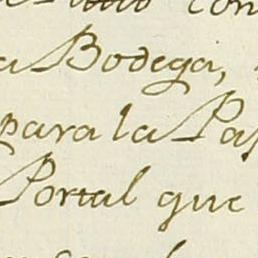 con
a Bodega,
para la Pa
Portal que